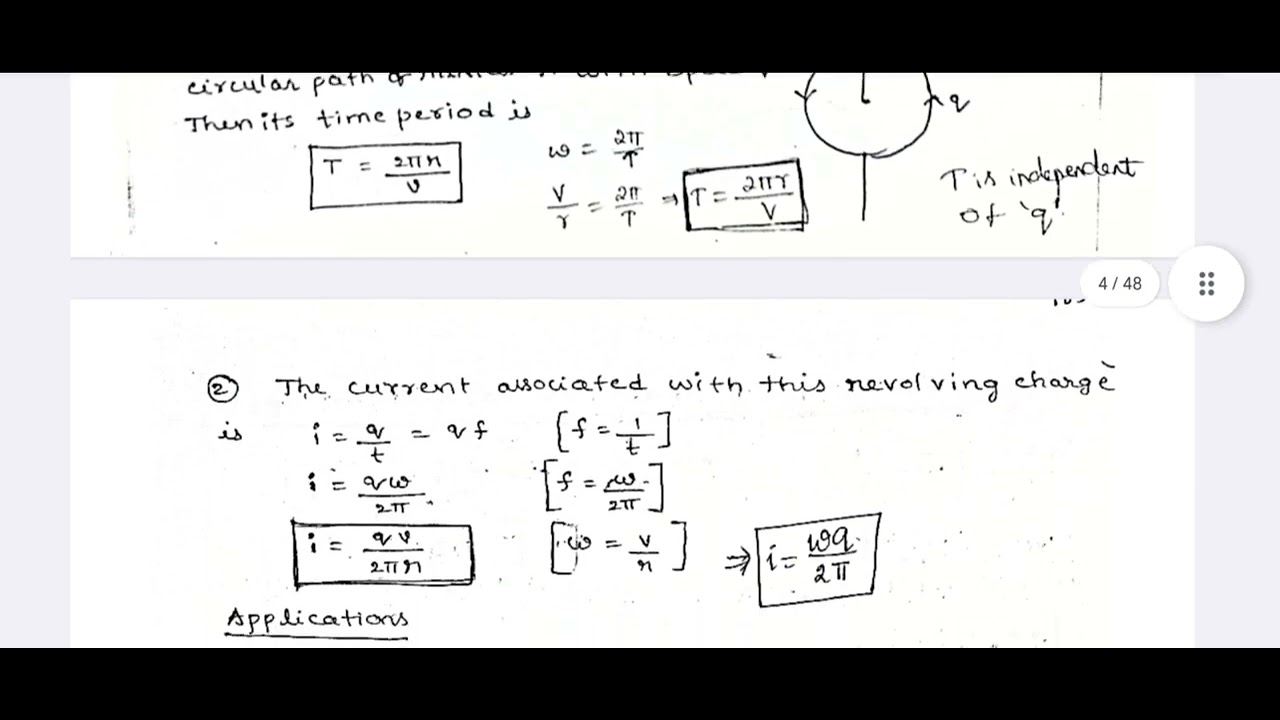 circular path of
Then its time period is
T = 2πr/v
ω = 2π/T
V/r = 2π/T ⇒ T = 2πr/V
q
T is independent
of 'q'.
4 / 48
② The current associated with this revolving charge
is i = q/t = qf [f = 1/t]
i = qω/2π [f = ω/2π]
i = qv/2πr [ω = v/r] ⇒ i = ωq/2π
Applications